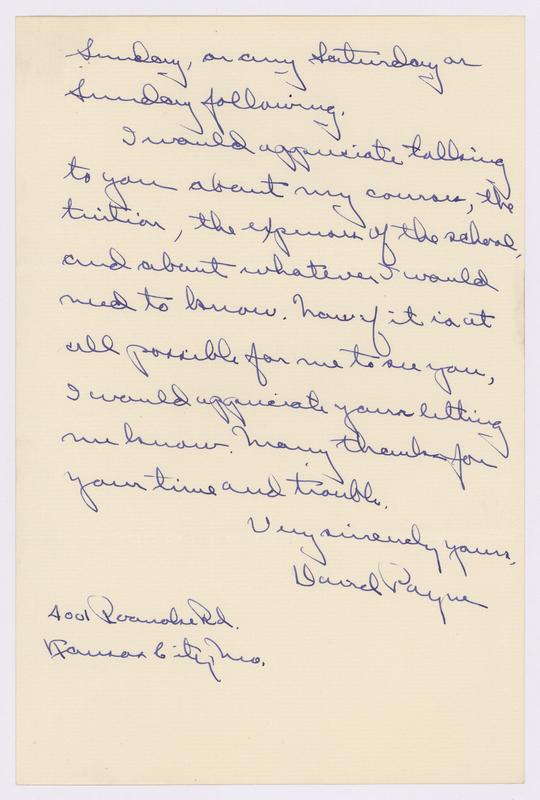 Sunday, or any Saturday or
Sunday following.
I would appreciate talking
to you about my courses, the
tuition, the expenses of the school,
and about whatever I would
need to know. Now if it is at
all possible for me to see you,
I would appreciate your letting
me know. Many thanks for
your time and trouble.
Very sincerely yours,
David Payne
4001 Roanoke Rd.
Kansas City, Mo.